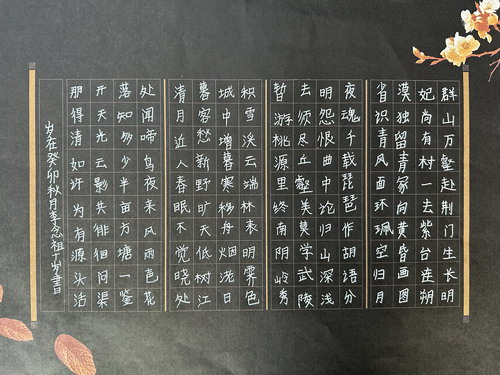 群山万壑赴荆门生长明
妃尚有村一去紫台连朔
漠独留青冢向黄昏画图
省识春风面环珮空归月
夜魂千载琵琶作胡语分
明怨恨曲中论归山深浅
去须尽丘壑美莫学武陵
暂游桃源里终南阴岭秀
积雪浮云端林表明霁色
城中增暮寒移舟烟渚日
暮客愁新野旷天低树江
清月近人春眠不觉晓处
处闻啼鸟夜来风雨声花
落知多少半亩方塘一鉴
开天光云影共徘徊问渠
那得清如许为有源头活
岁在癸卯秋月李念祖书